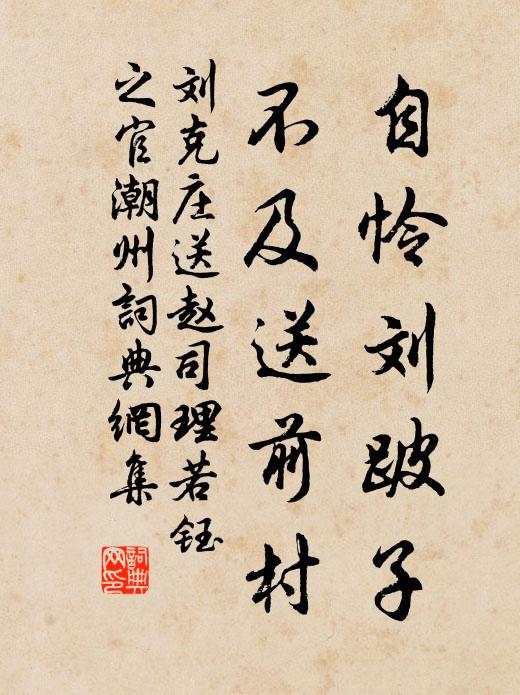 自怜刘跛子
不及送前村
刘克庄送赵司理若钰
之官潮州詞典網集
詞典网印